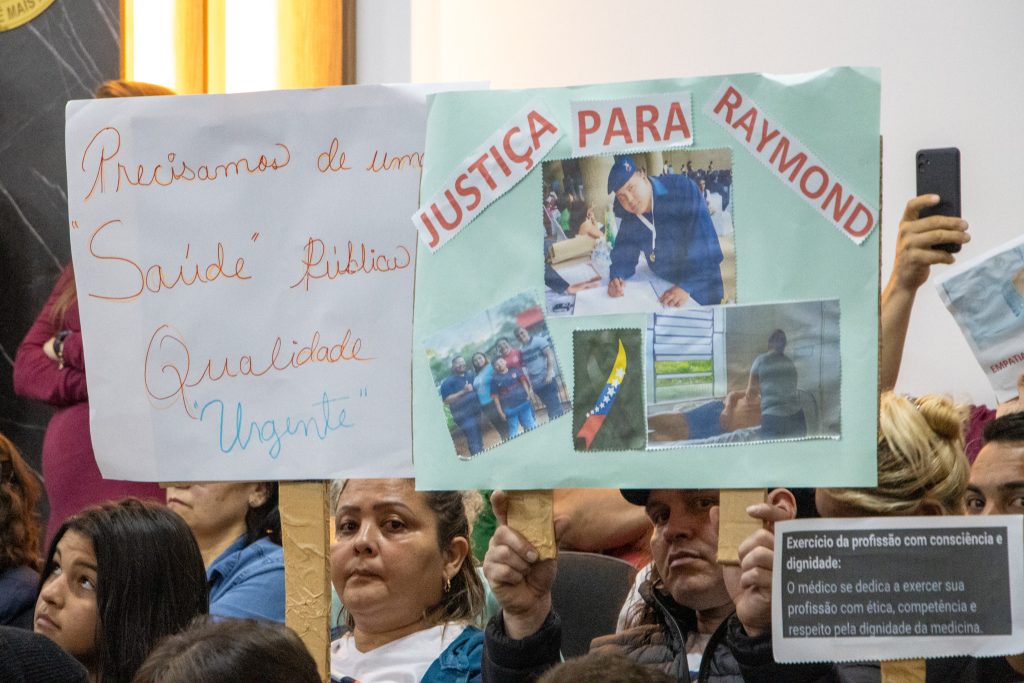 É MAIS
Precisamos de uma
"Saúde" Pública
Qualidade
"Urgente"
JUSTIÇA PARA RAYMOND
EMPATIA
Exercício da profissão com consciência e
dignidade:
O médico se dedica a exercer sua
profissão com ética, competência e
respeito pela dignidade da medicina.